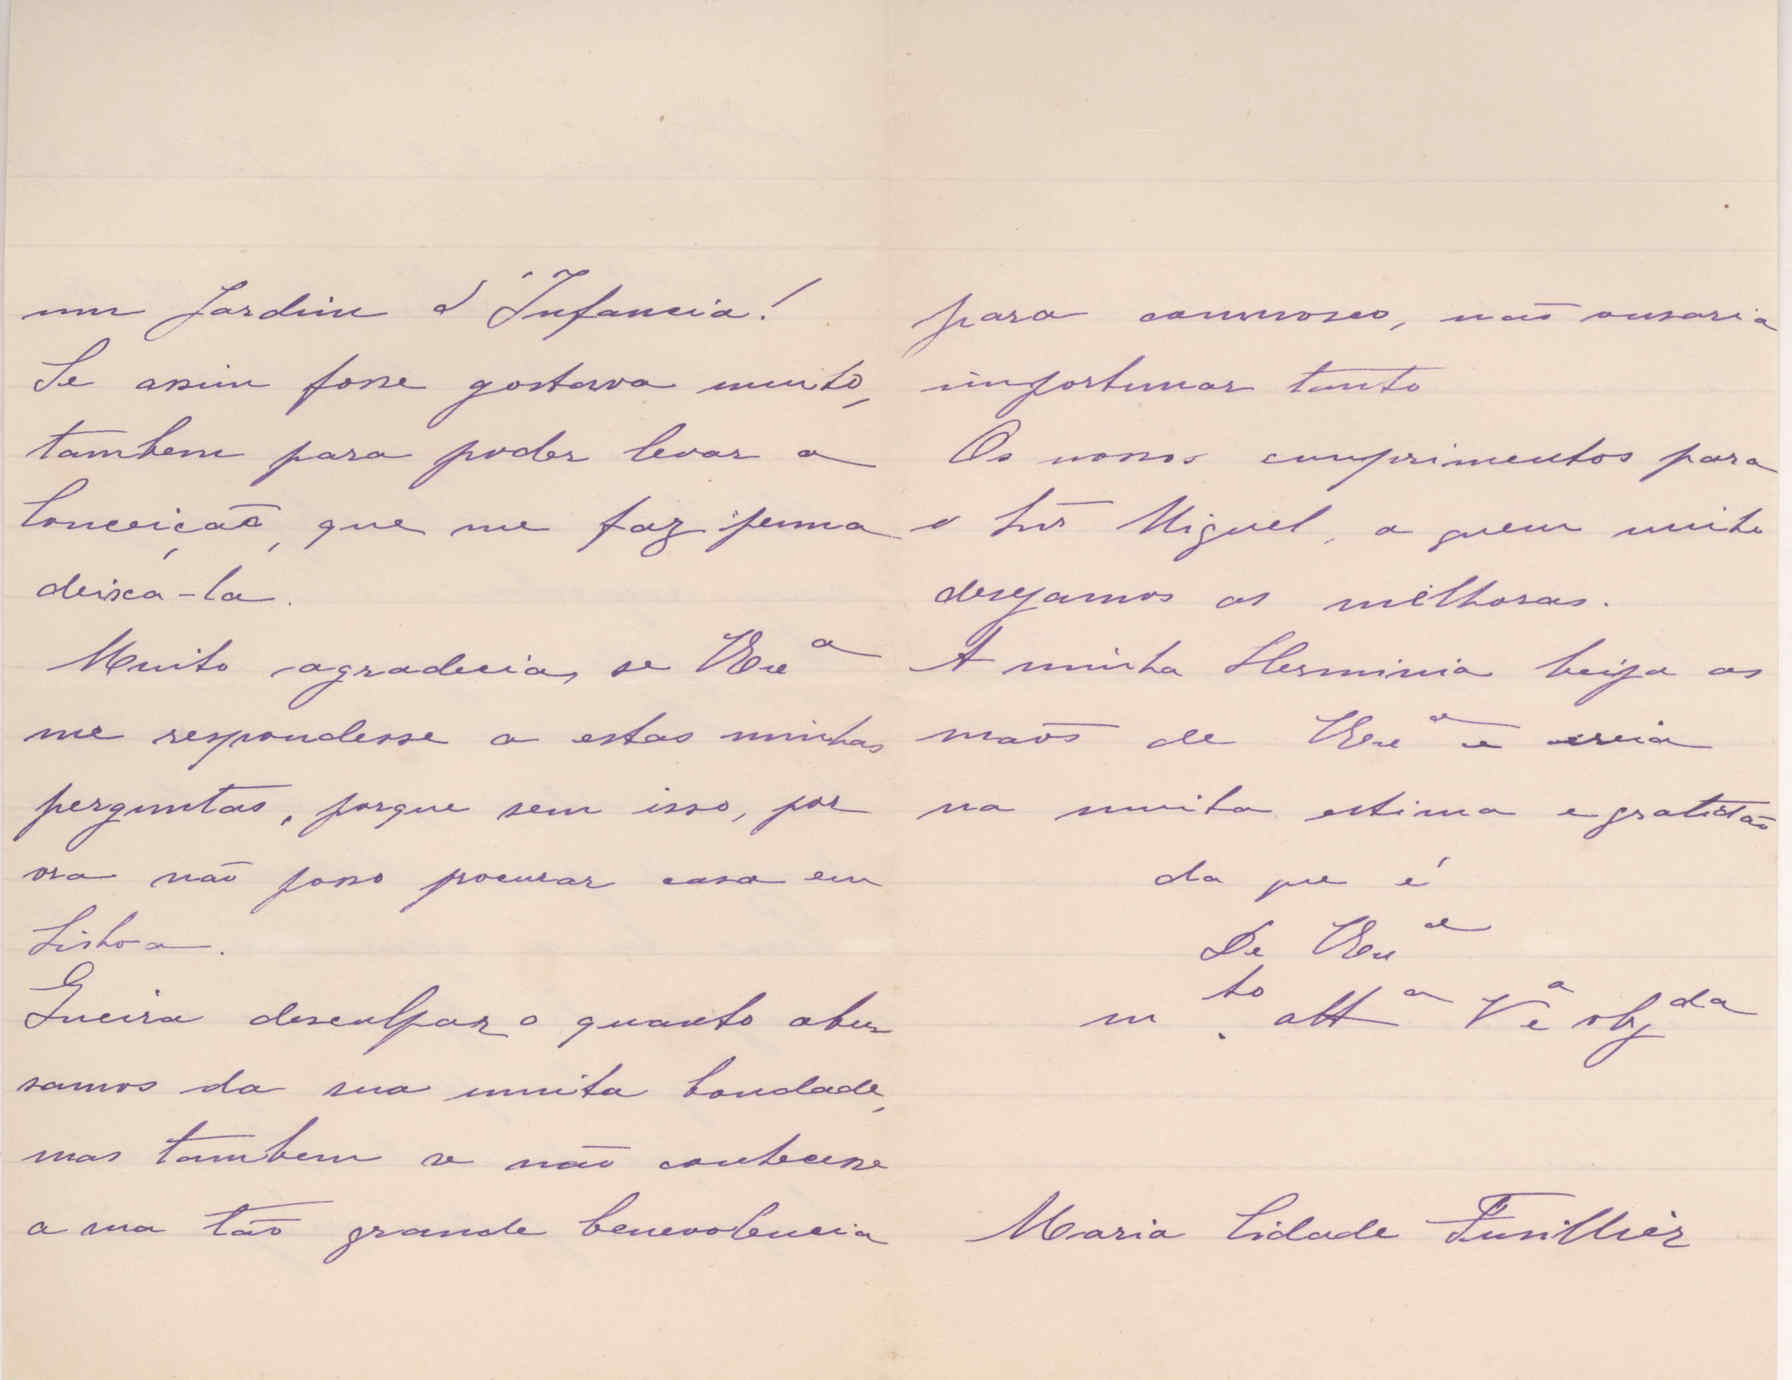 um Jardim d'Infancia!
Se assim fosse gostava muito,
tambem para poder levar a
Conceição, que me faz pena
deixá-la.
Muito agradecia, se VExª
me respondesse a estas minhas
perguntas, porque sem isso, por
ora não posso procurar casa em
Lisboa.
Queira desculpar o quanto abu-
samos da sua muita bondade,
mas tambem se não conhecesse
a sua tão grande benevolencia
para comnosco, não ousaria
importunar tanto
Os nossos cumprimentos para
o Snr Miguel, a quem muito
desejamos as melhoras.
A minha Herminia beija as
mãos de VExª e creia
na muita estima e gratidão
da que é
De VExª
m.to attª Vª e obgda
Maria Cidade Fusillier